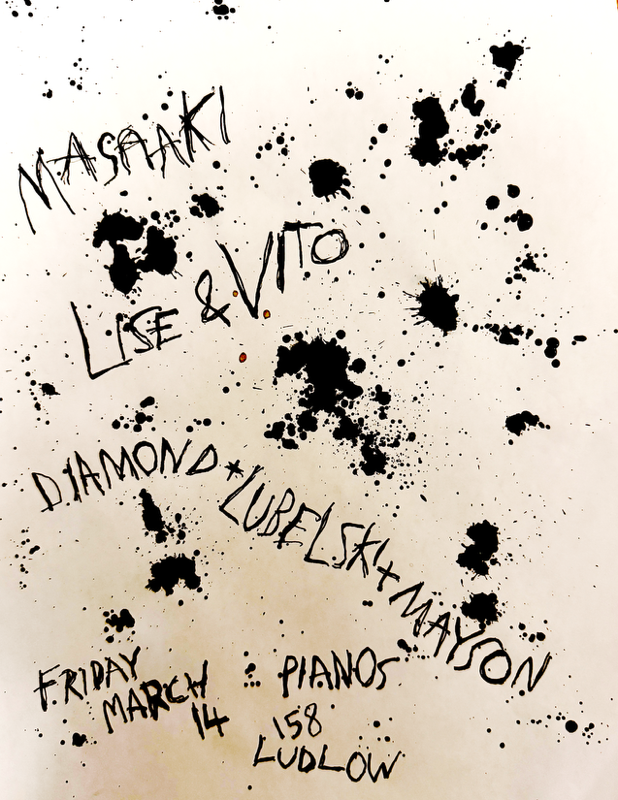 MASAAKI
LISE & VITO
DIAMOND + LUBELSKI + MAYSON
FRIDAY
MARCH
14
PIANOS
158
LUDLOW